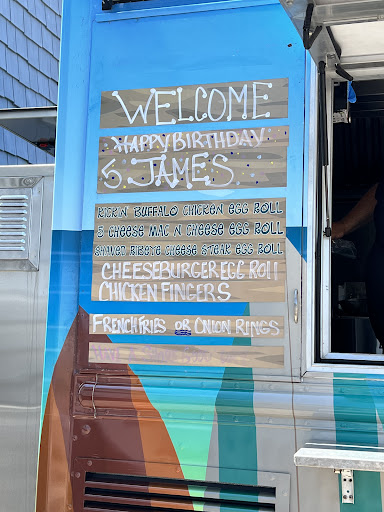 WELCOME
HAPPY BIRTHDAY
5. JAMES
KICK'N BUFFALO CHICKEN EGG ROLL
5 CHEESE MAC N CHEESE EGG ROLL
SHAVED RIBEYE CHEESE STEAK EGG ROLL
CHEESEBURGER EGG ROLL
CHICKEN FINGERS
FRENCH FRIES OR ONION RINGS